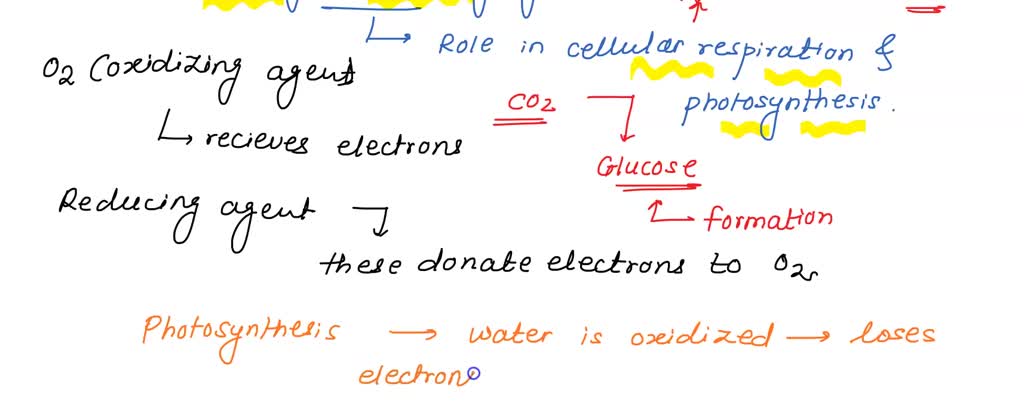 Role in cellular respiration &
photosynthesis.
O2 Coxidizing agent
recieves electrons
CO2
Glucose
formation
Reducing agent
these donate electrons to O2
Photosynthesis → water is oxidized → loses
electron